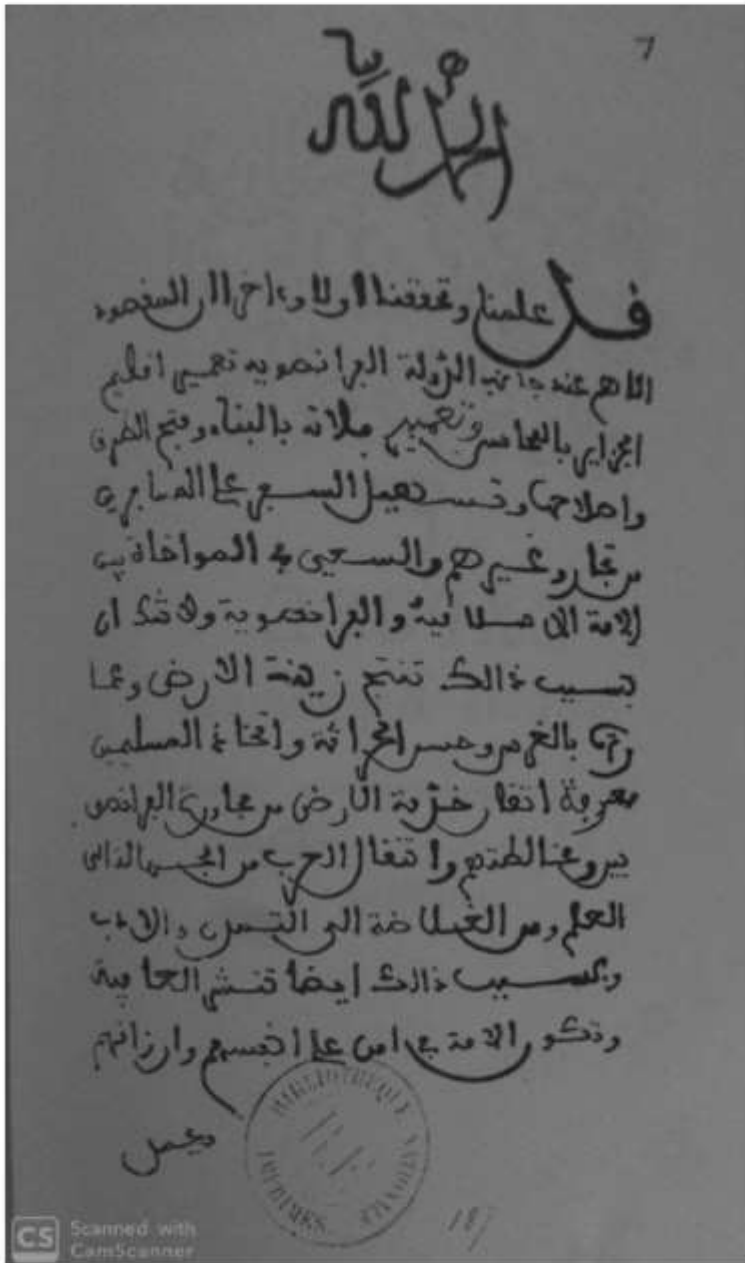 7
الحمد لله
قد علمنا وتحققنا اولا وءاخرا ان المقصود
الاهم عند جانب الدولة الفرانصويه تعمير اقليم
الجزاير بالمحاسن وتعمير بلادنه بالبناء وفتح الطرق
واصلاحها وتسهيل السفر على المسافرين
من تجار وغيرهم والسعيى في المواخاة بين
الامة الاسلامية والفرانصوية ولا شك ان
بسبب ذالك تنتج زينة الارض وعما
رتها بالغرس وحسن الحراثة واتخاذ المسلمين
معرفة اتقان خدمة الارض من مجاورة الفرانصو
يين ومخالطتهم وانتقال العرب من الجهل الى
العلم ومن الغلاضة الى التمدن والادب
وبسبب ذالك ايضا تنتشر العافية
وتكون الامة في امن على انفسهم وارزاقهم
فيحمل
BIBLIOTHEQUE NATIONALE
R.F.
IMPRIMÉS
187
CS
Scanned with
CamScanner